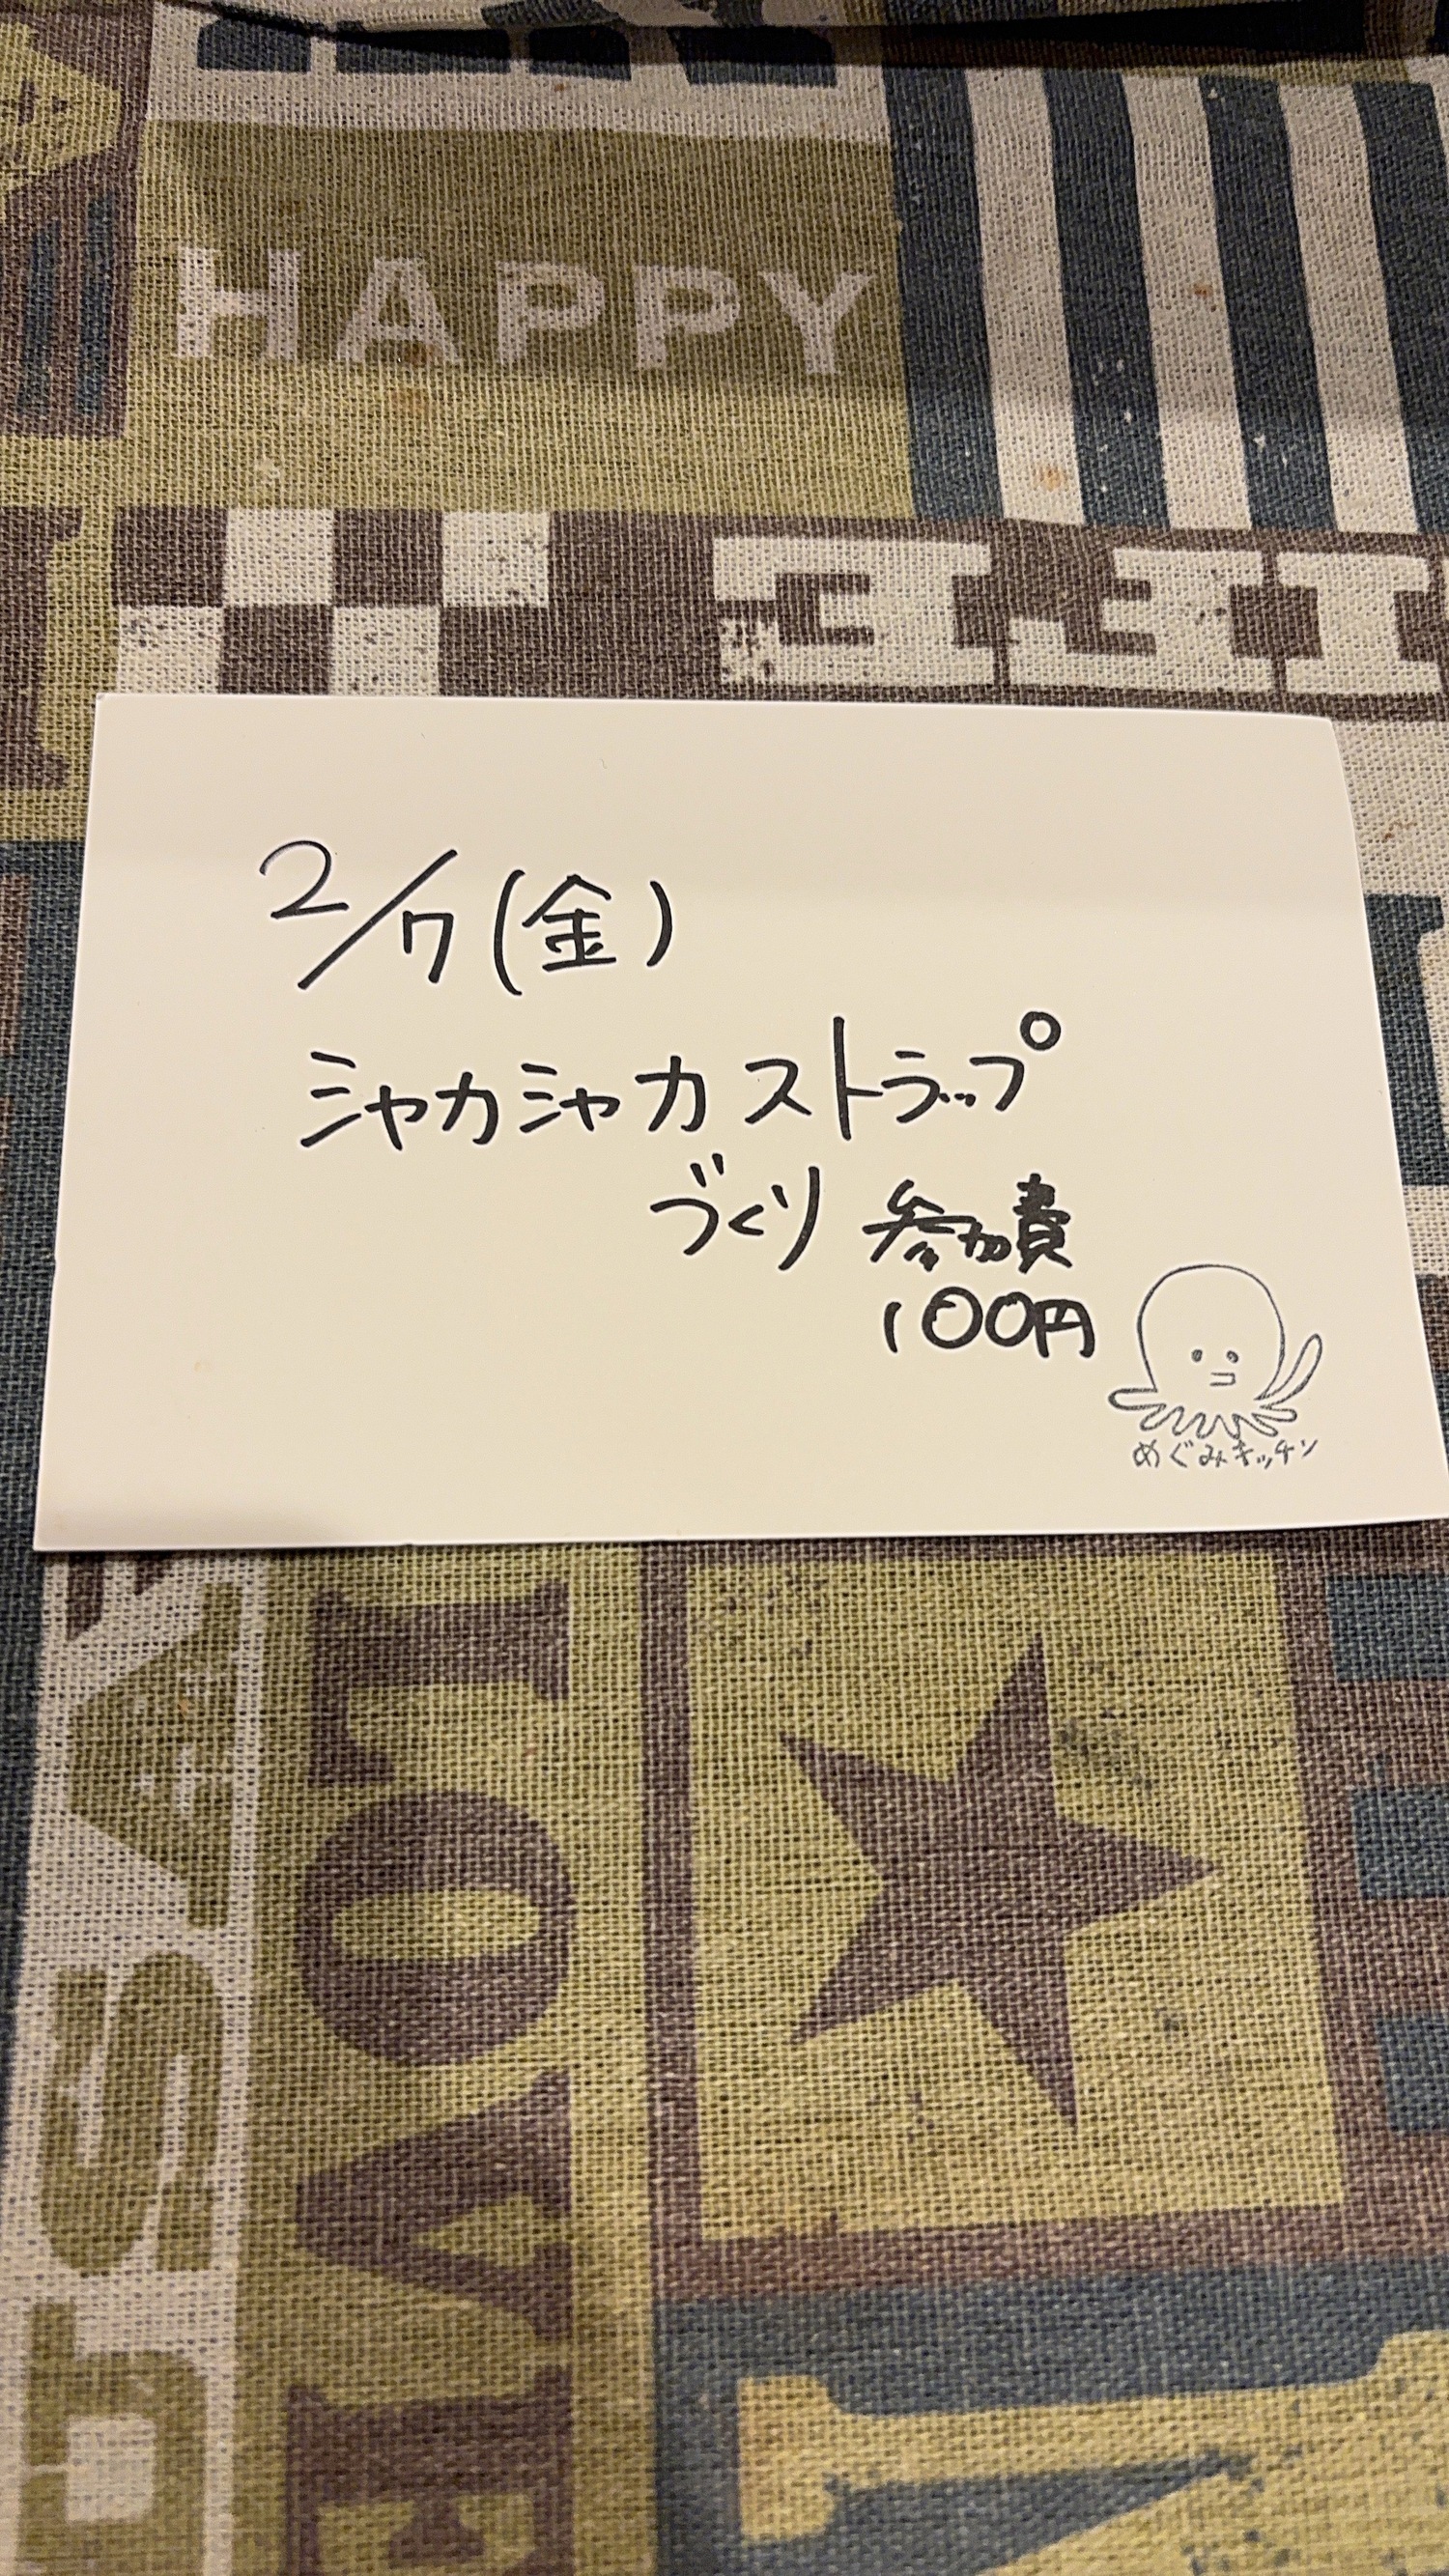 HAPPY
2/7(金)
シャカシャカストラップ
づくり 参加費
100円
めぐみキッチン
LOVE